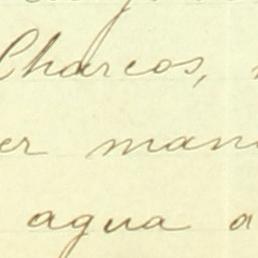 Charcos,
er man
agua a